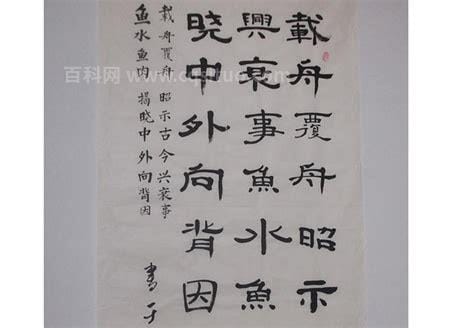 載舟覆舟昭示
興衰事魚水魚
晓中外向背因
載舟覆舟 昭示古今兴衰事
鱼水鱼肉 揭晓中外向背因
百科网